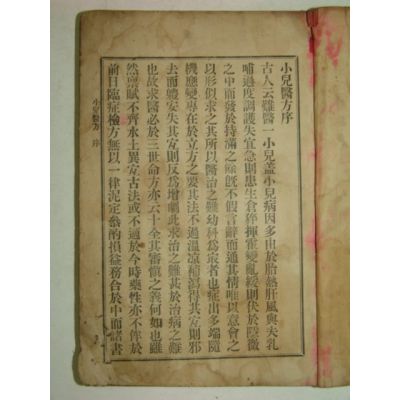 小兒醫方序
古人云難醫一小兒蓋小兒病因多由於胎熱肝風與夫乳
哺過度調護失宜急則患生倉猝揮霍變亂緩則伏於隱微
之中而發於持滿之餘旣不假言辭而通其情唯以意會之
以形似求之其所以醫治之難幼科爲最者也症出多端隨
機應變專在於立方之要其法不過溫凉補瀉得其宜則邪
去而軆安失其宜則反爲增劇此求治之難甚於治病之難
也故求醫必於三世命方亦云十全其審愼之義何如也雖
然稟賦不齊水土異宜古法或不適於今時藥性亦不侔於
前日臨症檢方無以一律泥定叅酌損益務合於中而諸書
小兒醫方 序